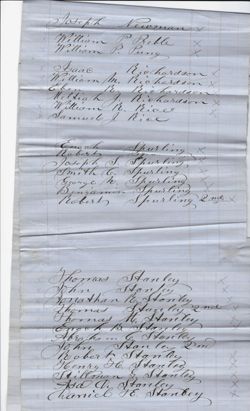 Joseph Newman x
William P Bible x
William P Pung x
Isaac Richardson x
William M Richardson x
Richardson x
William J Richardson x
William N Rice x
Samuel J Rice x
Enoch Spurling x
Roberts Spurling x
Joseph S Spurling x
Smith C Spurling x
George W Spurling x
Benjamin Spurling x
Robert Spurling 2nd x
Thomas Stanley x
John Stanley x
Jonathan R Stanley x
Thomas Stanley 2nd x
Thomas M Stanley x
Enoch B Stanley x
Abraham C Stanley x
John Stanley 2nd x
Robert Stanley x
Henry H Stanley x
Stanley x
Asa D Stanley x
Daniel E Stanley x